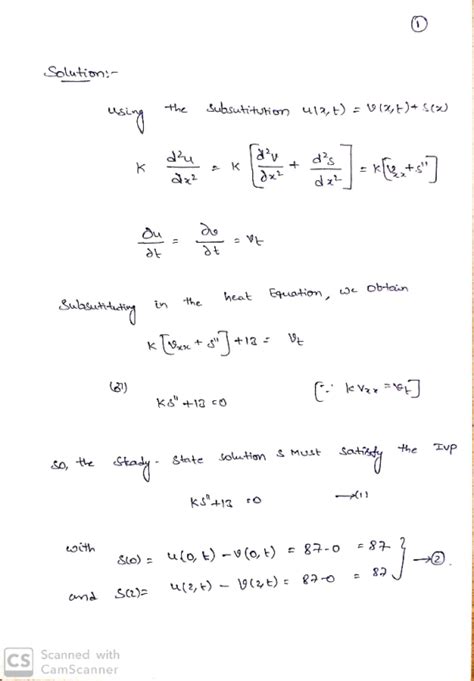 ①
Solution:-
using the subsutitution u(x,t) = v(x,t)+s(x)
K ∂²u/∂x² = K [∂²v/∂x² + d²s/dx²] = K[v_xx+s"]
∂u/∂t = ∂v/∂t = v_t
Subsutituting in the heat Equation, we obtain
K[v_xx + s"]+12 = v_t
(or) Ks"+12 =0 [∵ K v_xx = v_t]
so, the steady-state solution s must satisfy the IVP
Ks"+12 =0 →(1)
with s(0) = u(0,t) - v(0,t) = 87-0 = 87
and s(2)= u(2,t) - v(2,t) = 87-0 = 87 } →②
CS Scanned with
CamScanner